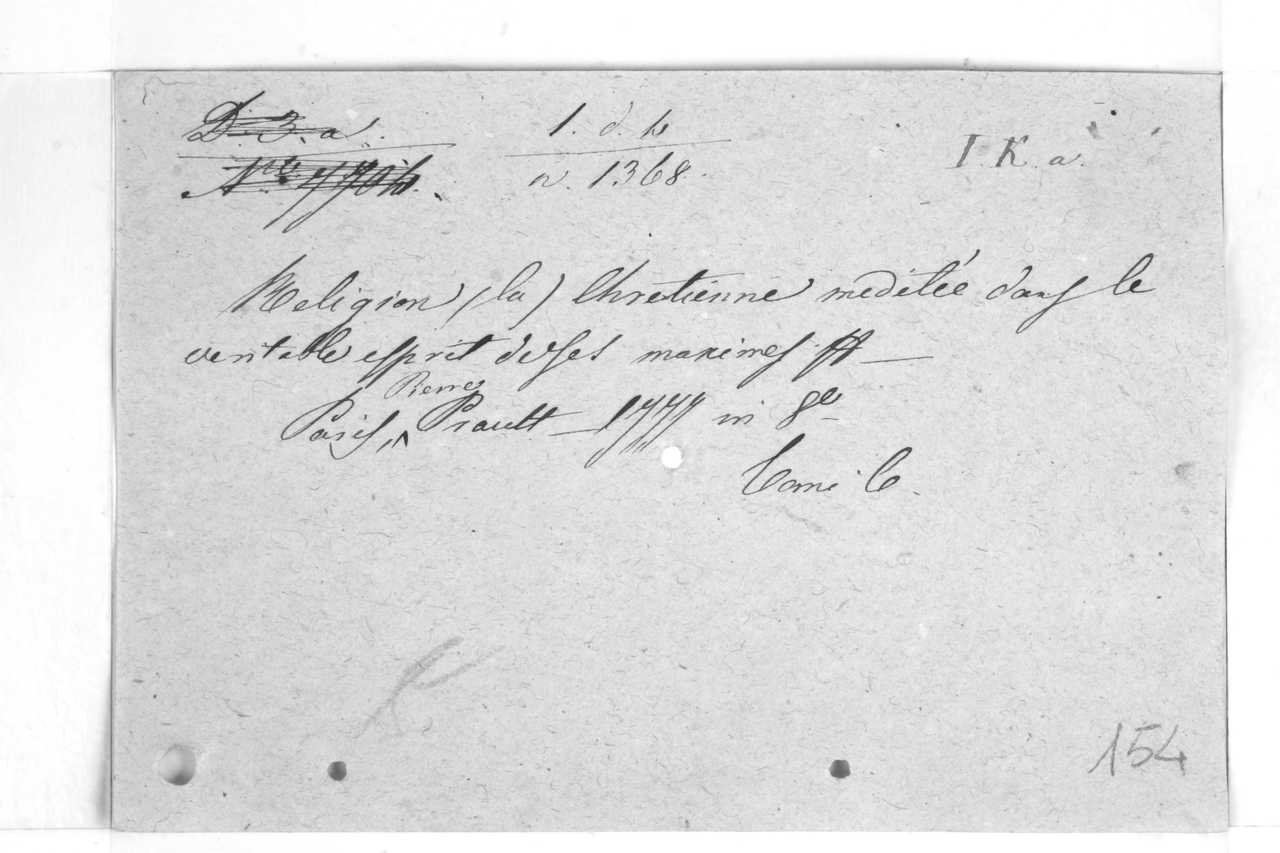 D. 3. a.
1. d. b
a. 1368.
I. K. a.
Religion (la) Chretienne meditée dans le
veritable esprit de ses maximes
Paris, Pierre Prault — 1771 in 8º
Tomi 6.
154